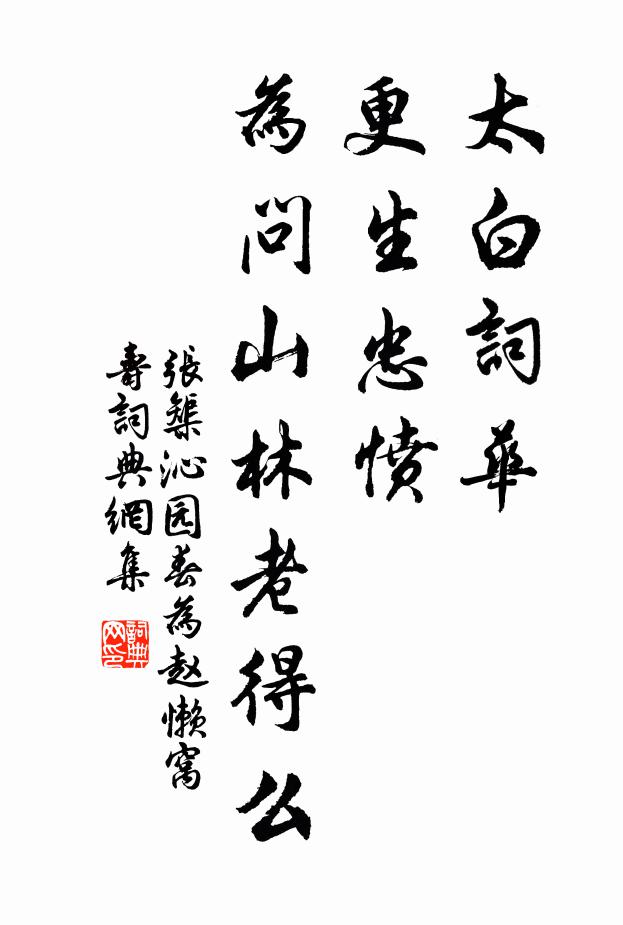 太白詞華
更生忠憤
為問山林老得么
張榘沁园春為赵懒窝
壽詞典網集
詞典
网印